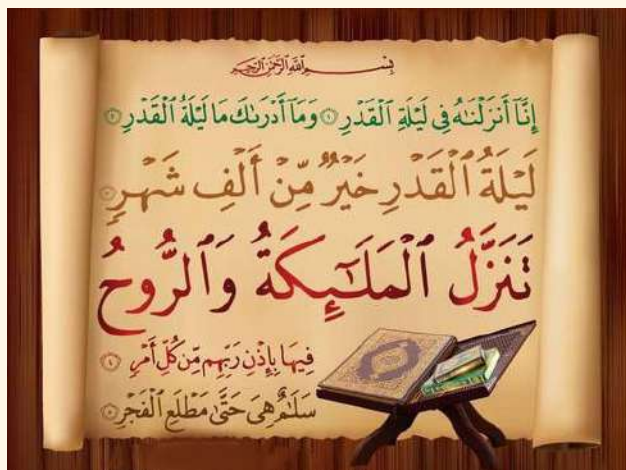 بِسْمِ اللَّهِ الرَّحْمَٰنِ الرَّحِيمِ
إِنَّآ أَنزَلْنَٰهُ فِى لَيْلَةِ ٱلْقَدْرِ ۝١ وَمَآ أَدْرَىٰكَ مَا لَيْلَةُ ٱلْقَدْرِ ۝٢
لَيْلَةُ ٱلْقَدْرِ خَيْرٌ مِّنْ أَلْفِ شَهْرٍ ۝٣
تَنَزَّلُ ٱلْمَلَٰٓئِكَةُ وَٱلرُّوحُ
فِيهَا بِإِذْنِ رَبِّهِم مِّن كُلِّ أَمْرٍ ۝٤
سَلَٰمٌ هِىَ حَتَّىٰ مَطْلَعِ ٱلْفَجْرِ ۝٥